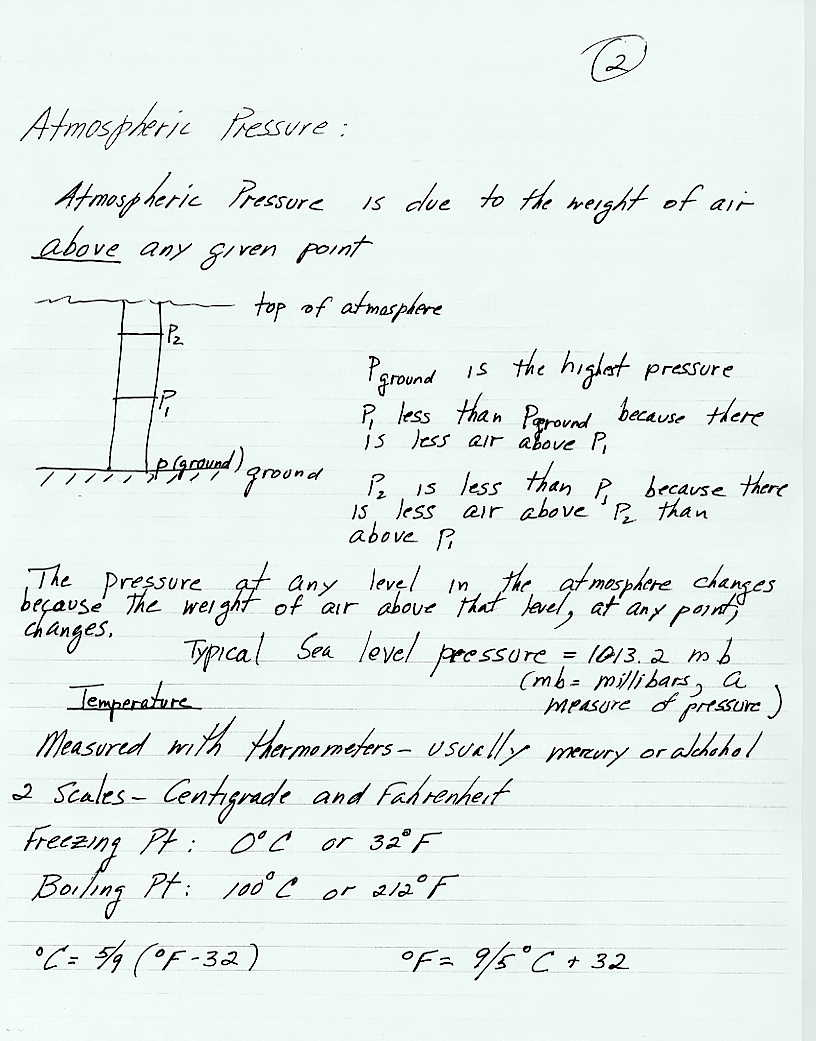 2
Atmospheric Pressure:
Atmospheric Pressure is due to the weight of air
above any given point
top of atmosphere
P2
P1
p(ground)
ground
Pground is the highest pressure
P1 less than Pground because there
is less air above P1
P2 is less than P1 because there
is less air above P2 than
above P1
The pressure at any level in the atmosphere changes
because the weight of air above that level, at any point,
changes.
Typical Sea level pressure = 1013.2 mb
(mb = millibars, a
measure of pressure)
Temperature
Measured with thermometers - usually mercury or alchohol
2 Scales - Centigrade and Fahrenheit
Freezing Pt: 0°C or 32°F
Boiling Pt: 100°C or 212°F
°C = 5/9 (°F - 32)
°F = 9/5 °C + 32